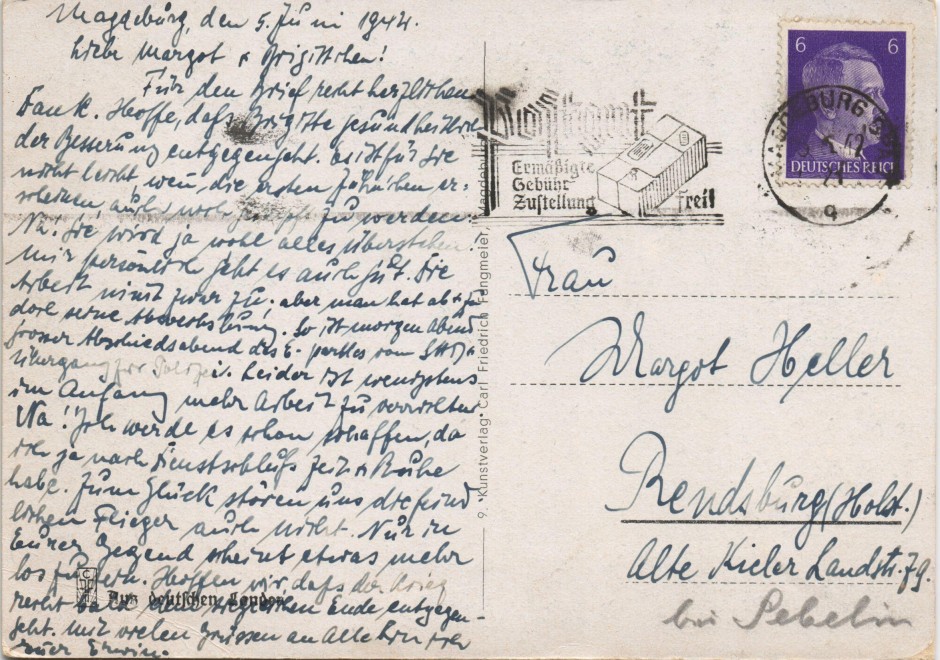 Magdeburg, den 5. Juni 1942.
Liebe Margot & Brigittchen!
Für den Brief recht herzlichen
Dank. Hoffe, daß Brigitte gesundheitlich
der Besserung entgegengeht. Es ist für sie
nicht leicht, wenn die ersten Zähnchen er-
scheinen auch noch geimpft zu werden.
Na. Sie wird ja wohl alles überstehen.
mir persönlich geht es auch gut. Die
Arbeit nimt zwar zu, aber man hat ab & zu
doch seine Abwechslung. So ist morgen Abend
grosser Abschiedsabend des
Übergang zur Polizei. Leider ist wenigstens
im Anfang mehr Arbeit zu verrichten
Na! Ich werde es schon schaffen, da
ich ja nach Dienstschluß Zeit & Ruhe
habe. Zum Glück stören uns die feind
lichen Flieger auch nicht. Nur in
Eurer Gegend scheint etwas mehr
los zu sein. Hoffen wir, daß der Krieg
recht bald dem siegreichen Ende entgegen-
geht. Mit vielen Grüssen an Alle bin ich
Euer Erwin.
Aus deutschen Landen
9. Kunstverlag Carl Friedrich Fangmeier, Magdeburg
Ermäßigte
Gebühr
Zustellung frei!
6 6
DEUTSCHES REICH
MAGDEBURG
Frau
Margot Heller
Rendsburg (Holst.)
Alte Kieler Landstr. 79.
bei Sebelin